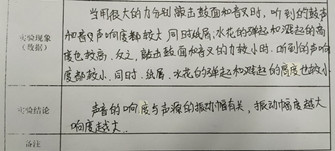 当用很大的力分别敲击鼓面和音叉时,听到的鼓声
和音叉声响度都较大,同时纸屑、水花的弹起和溅起的高
实验现象
(数据)
度也较高,反之,敲击鼓面和音叉的力较小时,听到的声响
度都较小,同时,纸屑、水花的弹起和溅起的高度也较小.
实验结论
声音的响度与声源的振动幅度有关,振动幅度越大
响度越大.
备注